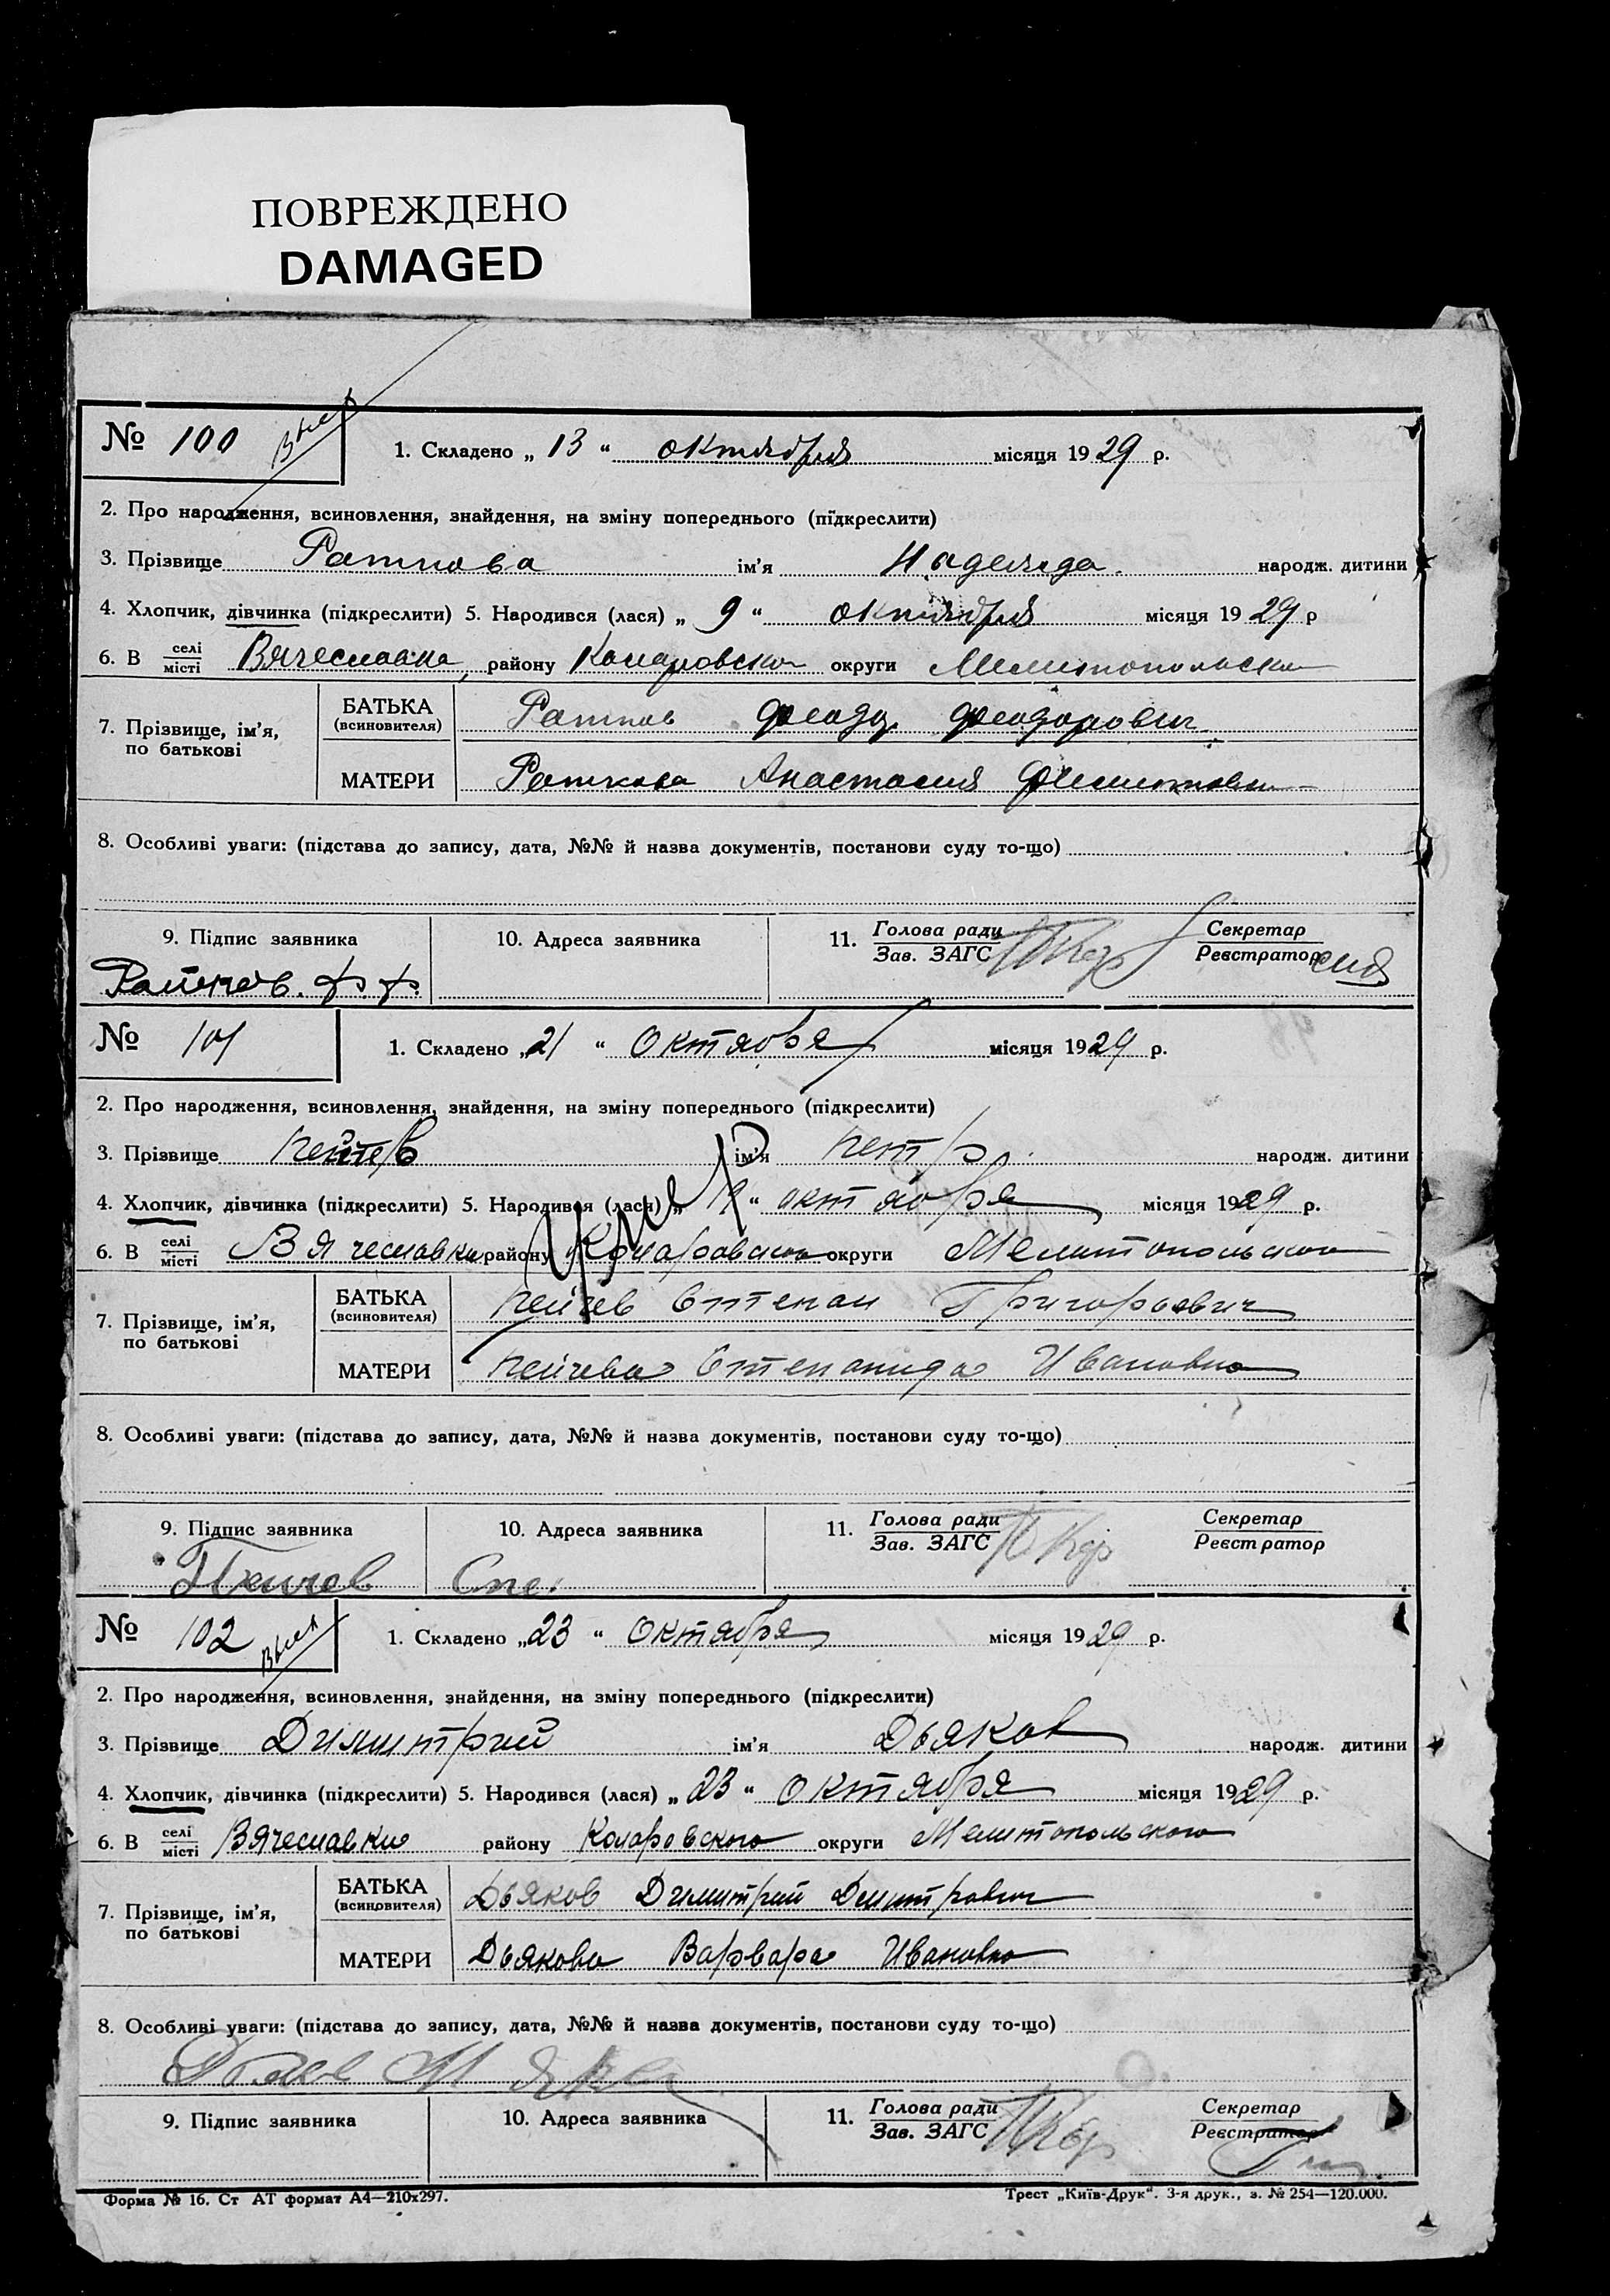 ПОВРЕЖДЕНО
DAMAGED
№ 100 1. Складено „ 13 “ октября місяця 1929 р.
2. Про народження, всиновлення, знайдення, на зміну попереднього (підкреслити)
3. Прізвище Раткова ім'я Надежда народж. дитини
4. Хлопчик, дівчинка (підкреслити) 5. Народився (лася) „ 9 “ октября місяця 1929 р
6. В селі місті Вячеславка, району округи
БАТЬКА (всиновителя) Ратков Феодор Феодорович
7. Прізвище, ім'я, по батькові
МАТЕРИ Раткова Анастасия
8. Особливі уваги: (підстава до запису, дата, №№ й назва документів, постанови суду то-що)
9. Підпис заявника 10. Адреса заявника 11. Голова ради Зав. ЗАГС Секретар Реєстратор
Ратков. Ф. Ф.
№ 101 1. Складено „21 “ Октября місяця 1929 р.
2. Про народження, всиновлення, знайдення, на зміну попереднього (підкреслити)
3. Прізвище ім'я Петр народж. дитини
умер
4. Хлопчик, дівчинка (підкреслити) 5. Народився (лася) „ 19 “ октября місяця 1929 р.
6. В селі місті Вячеславки району округи
БАТЬКА (всиновителя) Пейчев Степан Григорьевич
7. Прізвище, ім'я, по батькові
МАТЕРИ Пейчева Степанида Ивановна
8. Особливі уваги: (підстава до запису, дата, №№ й назва документів, постанови суду то-що)
9. Підпис заявника 10. Адреса заявника 11. Голова ради Зав. ЗАГС Секретар Реєстратор
Пейчев
№ 102 1. Складено „23 “ Октября місяця 1929 р.
2. Про народження, всиновлення, знайдення, на зміну попереднього (підкреслити)
3. Прізвище Димитрий ім'я Дьяков народж. дитини
4. Хлопчик, дівчинка (підкреслити) 5. Народився (лася) „ 23 “ Октября місяця 1929 р.
6. В селі місті Вячеславки району Коларовского округи Мелитопольского
БАТЬКА (всиновителя) Дьяков Димитрий Дмитрович
7. Прізвище, ім'я, по батькові
МАТЕРИ Дьякова Варвара Ивановна
8. Особливі уваги: (підстава до запису, дата, №№ й назва документів, постанови суду то-що)
9. Підпис заявника 10. Адреса заявника 11. Голова ради Зав. ЗАГС Секретар Реєстратор
Форма № 16. Ст АТ формат А4—210х297. Трест „Київ-Друк“. 3-я друк., з. № 254—120.000.